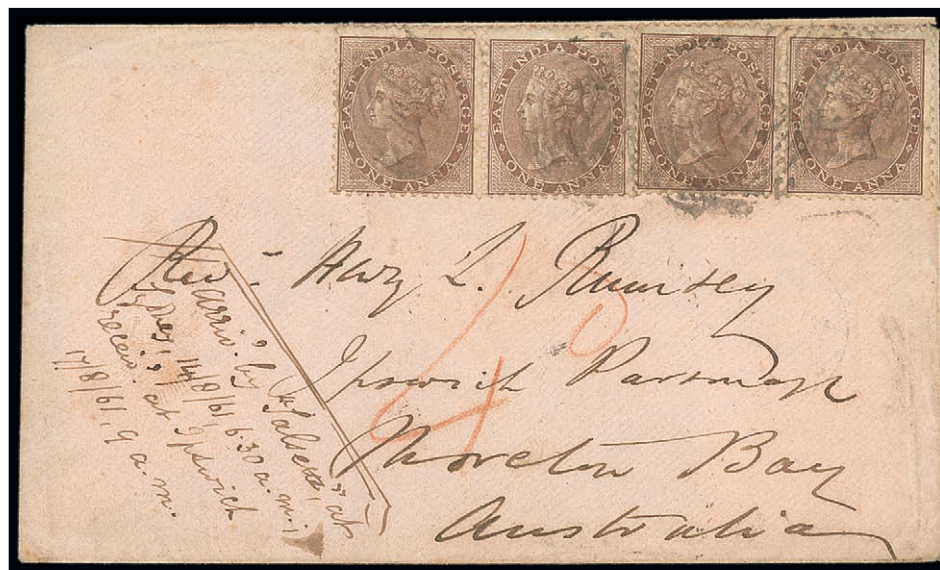 EAST INDIA POSTAGE
ONE ANNA
EAST INDIA POSTAGE
ONE ANNA
EAST INDIA POSTAGE
ONE ANNA
EAST INDIA POSTAGE
ONE ANNA
Rev: L. Rumsey
Ipswich Parsonage
Moreton Bay
Australia
arriv. by at
14/8/61, 6.30 a.m.;
receiv. at Ipswich
17/8/61, 9 a.m.
4